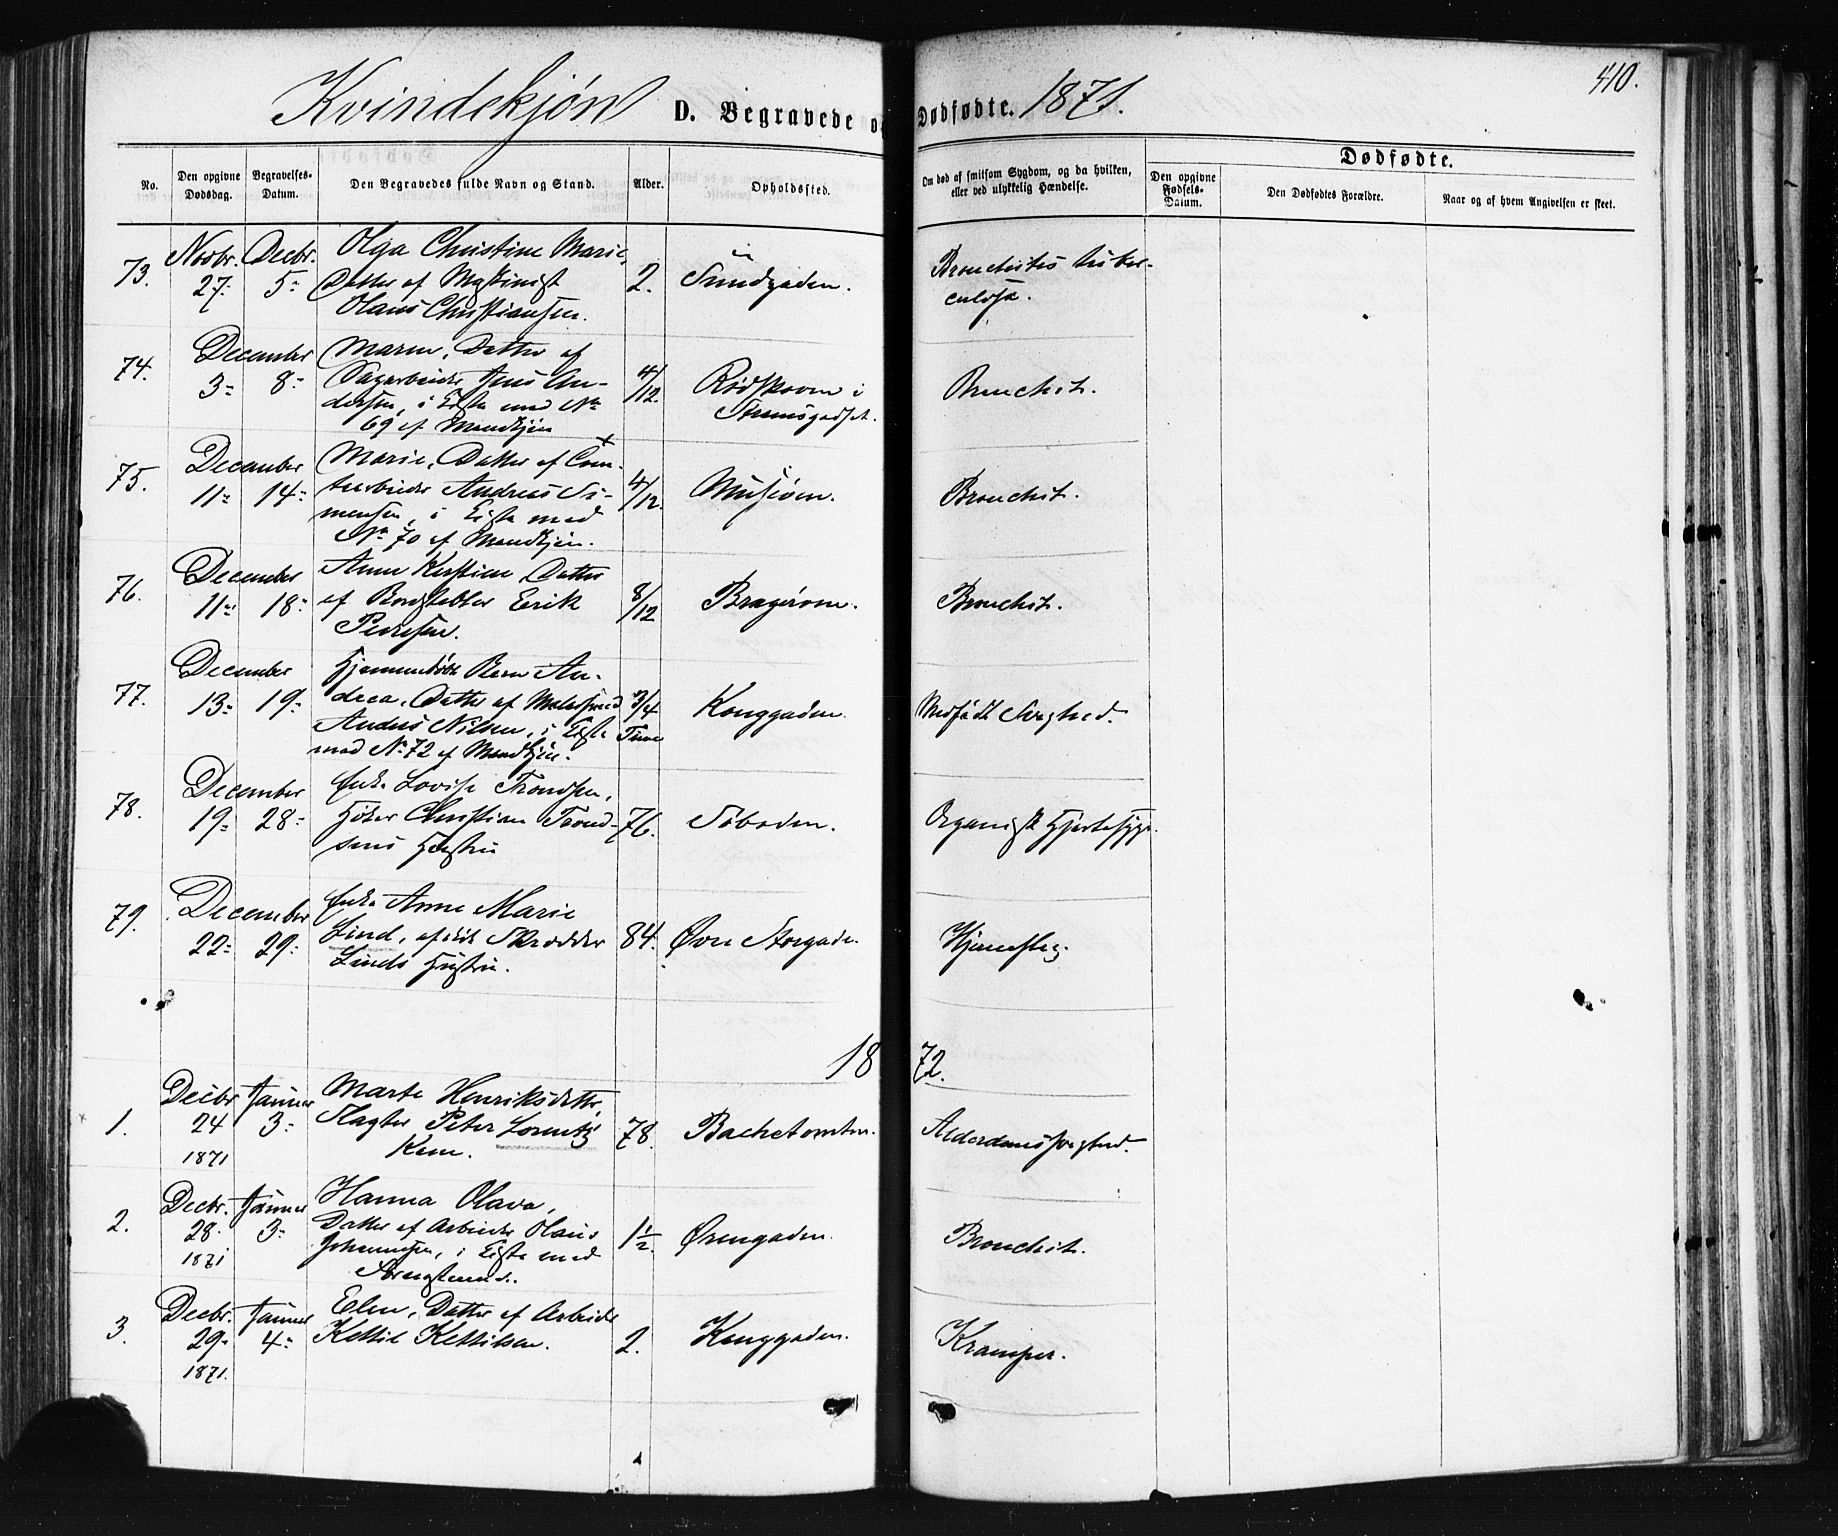 410.
Kvindekjøn D. Begravede og Dødfødte. 1871.
No.
Den opgivne Dødsdag.
Begravelses-Datum.
Den Begravedes fulde Navn og Stand.
Alder.
Opholdssted.
Om død af smitsom Sygdom, og da hvilken,
eller ved ulykkelig Hændelse.
Dødfødte.
Den opgivne Fødsels-Datum.
Den Dødfødtes Forældre.
Naar og af hvem Angivelsen er skeet.
73. Novbr. 27. Decbr. 5. Olga Christine Marie,
Datter af
Olaus Christiansen. 2. Sundgaden. Bronchites tuber-
culosa.
74. December 3. 8. Maren, Datter af
Dagarbeider Jens An-
dersen, i Kiste med No
69 af Mandkjøn 4/12. Rødskoven i
Strømsgodset. Bronchit.
75. December 11. 14. Marie, Datter af
Andreas Si-
mensen, i Kiste med
No 70 af Mandkjøn. 4/12. Musiøen. Bronchit.
76. December 11. 18. Anne Kirstine, Datter
af Erik
Pedersen. 8/12 Bragerøen. Bronchit.
77. December 13. 19. Hjemmedøbt An-
drea, Datter af
Anders Nilsen, i Kiste
med No 72 af Mandkjøn. 3/4 Time Konggaden. Medfødt Svaghed.
78. December 19. 28. Enke Lovise Trondsen,
Høker Christian Trond-
sens Hustru 76. Søboden. Organisk Hjertesyge.
79. December 22. 29. Enke Anne Marie
Lind, afdøde Skrædder
Linds Hustru. 84. Øvre Storgade. Hjerneslag.
1872.
1. Decbr 24 1871 Januar 3. Marte Henriksdatter,
Slagter Peter Lorentz
Kone. 78. Bachetomten. Alderdomssvaghed.
2. Decbr. 28. 1871 Januar 3. Hanna Olava,
Datter af Arbeider Olaus
Johannesen, i Kiste med
1½. Ørengaden. Bronchit.
3. Decbr. 29. 1871. Januar 4. Elen, Datter af Arbeider
Kettil Kettilsen. 2. Konggaden. Kramper.